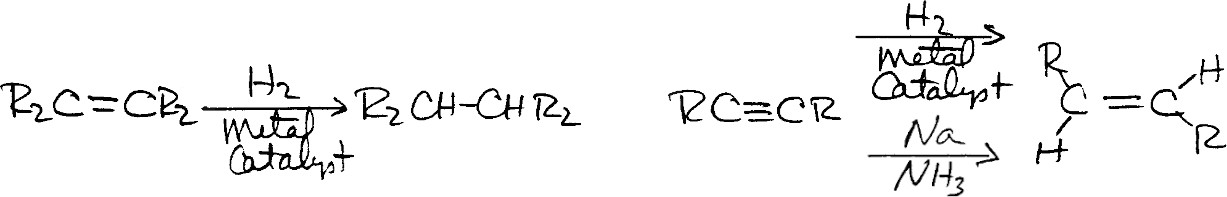 R₂C=CR₂ H₂ Metal Catalyst R₂CH-CHR₂
RC≡CR H₂ Metal Catalyst Na NH₃ R H C=C H R